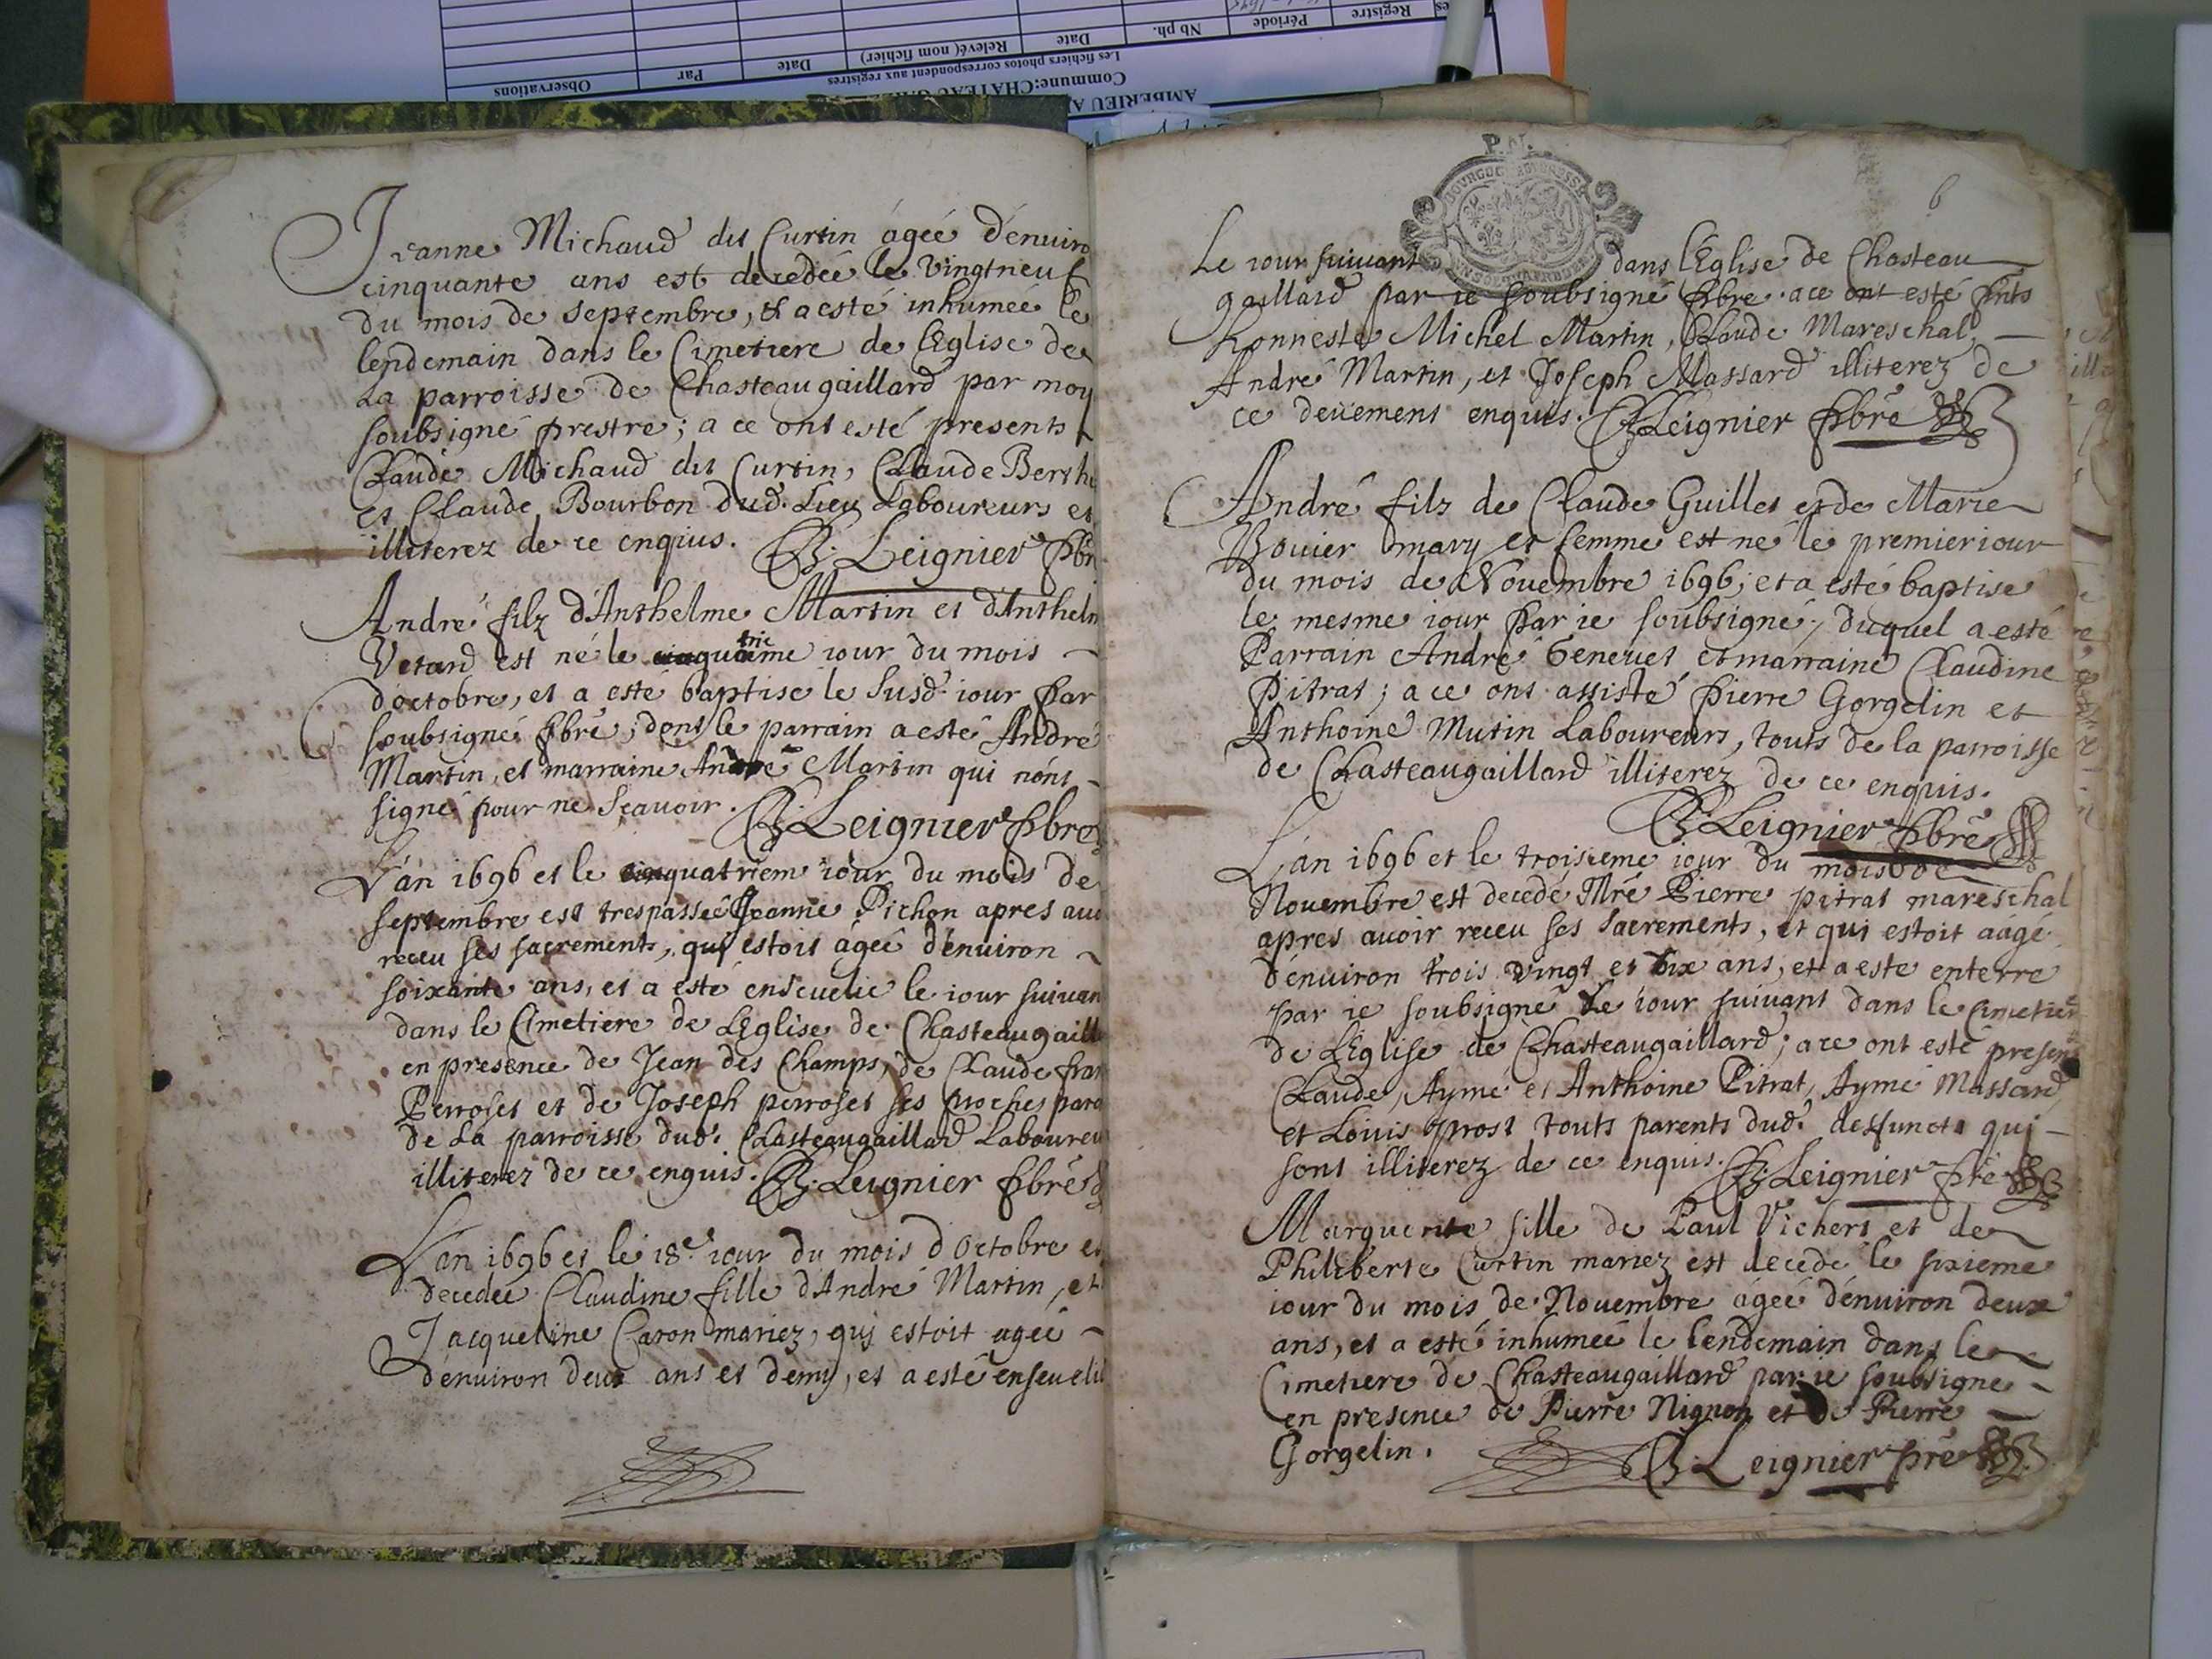 Observations
Par
Date
Relevé( nom fichier)
Date
Nb ph.
Période
Registre
Les fichiers photos correspondent aux registres
Commune:CHATEAU
AMBERIEU
Jeanne Michaud dit Curtin ágeé dénuiro
cinquante ans est decedeé le vingtneuf
du mois de septembre, et a esté inhumeé le
lendemain dans le Cimetiere de l'Eglise de
La parroisse de Chasteaugaillard par moy
soubsigné prestre; a ce ont esté presents
Claude Michaud dit Curtin, Claude Berth
et Claude Bourbon dud. Lieu Laboureurs et
illiterez de ce enquis. Leignier pbr
André filz d'Anthelme Martin et d'Anthelm
Vetard est né le quatrieme iour du mois
doctobre, et a esté baptisé le susd. iour par
soubsigné pbré; dont le parrain a esté André
Martin, et marraine Andrée Martin qui nónt
signé pour ne sçauoir. Leignier pbre
L'án 1696 et le quatriem iour du mois de
septembre est trespasseé Jeanne Pichon apres auo
receu ses sacrements, qui estoit ágeé dénuiron
soixante ans, et a esté enseuelie le iour suiuan
dans le Cimetiere de L'Eglise de Chasteaugaill
en presence de Jean des Champs, de Claude fran
Perroset et de Joseph perroset ses proches pare
de La parroisse dud. Chasteaugaillard Laboureu
illiterez de ce enquis. Leignier pbré
L'an 1696 et le 18e iour du mois d'Octobre es
decedeé Claudine fille d'André Martin, et
Jacqueline Caron mariez, qui estoit ageé
dénuiron deux ans et demy, et a esté enseuelie
P.N.
BOURGOG
6
Le iour suiuant dans l'Eglise de Chasteau
gaillard par ie soubsigné pbre. a ce ont esté pnts
honneste Michel Martin, Claude Mareschal,
André Martin, et Joseph Massard illiterez de
ce deüement enquis. Leignier pbré
André filz de Claude Guillet et de Marie
Bouier mary et femme est né le premier iour
du mois de Nouembre 1696, et a esté baptisé
le mesme iour par ie soubsigné, duquel a esté
Parrain André Geneuet et marraine Claudine
Pitrat; a ce ont assisté pierre Gorgelin et
Anthoine Mutin Laboureurs, touts de la parroisse
de Chasteaugaillard illiterez de ce enquis.
Leignier pbré
L'án 1696 et le troisieme iour du mois de
Nouembre est decedé Mré Pierre pitrat mareschal
apres auoir receu ses sacrements, et qui estoit áagé
dénuiron trois vingt et dix ans, et a esté enterré
par ie soubsigné le iour suiuant dans le Cimetiere
de L'Eglise de Chasteaugaillard; a ce ont esté present
Claude, Aymé et Anthoine Pitrat, Aymé Massard,
et Loüis prost touts parents dud. deffunct qui
sont illiterez de ce enquis. Leignier pré
Marguerite fille de Paul Vichert et de
Philiberte Curtin mariez est decedé le sixieme
iour du mois de Nouembre ágeé dénuiron deux
ans, et a esté inhumeé le lendemain dans le
Cimetiere de Chasteaugaillard par ie soubsigné
en presence de Pierre Nignon et de Pierre
Gorgelin. Leignier pré